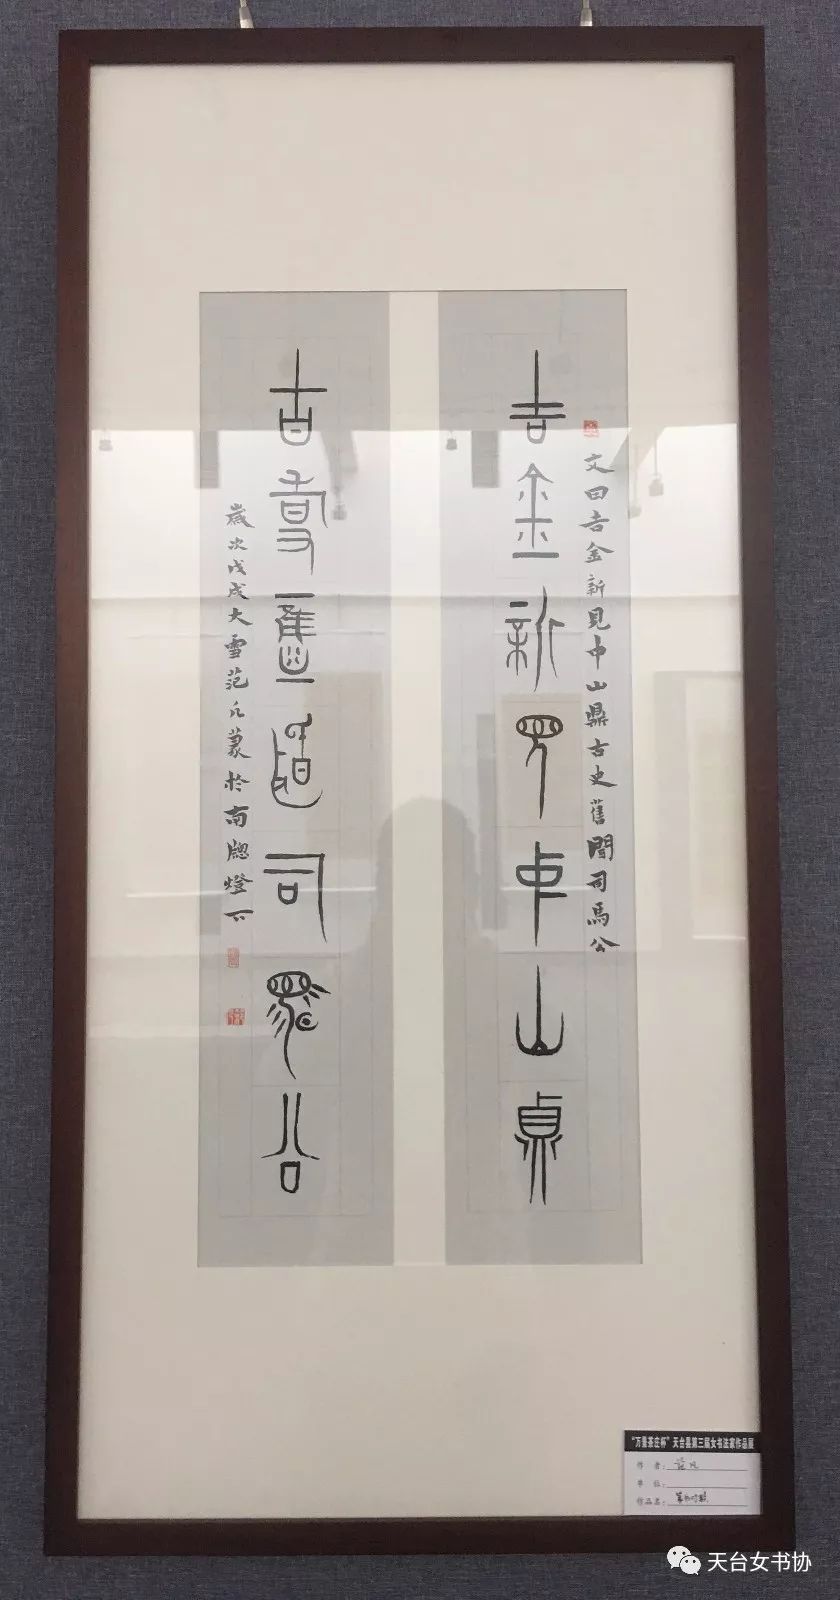 文曰吉金新見中山鼎古史舊聞司馬公
吉金新見中山鼎
古史舊聞司馬公
歲次戊戌大雪范凡篆於南窗燈下
"万量茶庄杯"天台县第三届女书法家作品展
作 者：范凡
单 位：
作品名：篆书对联
天台女书协